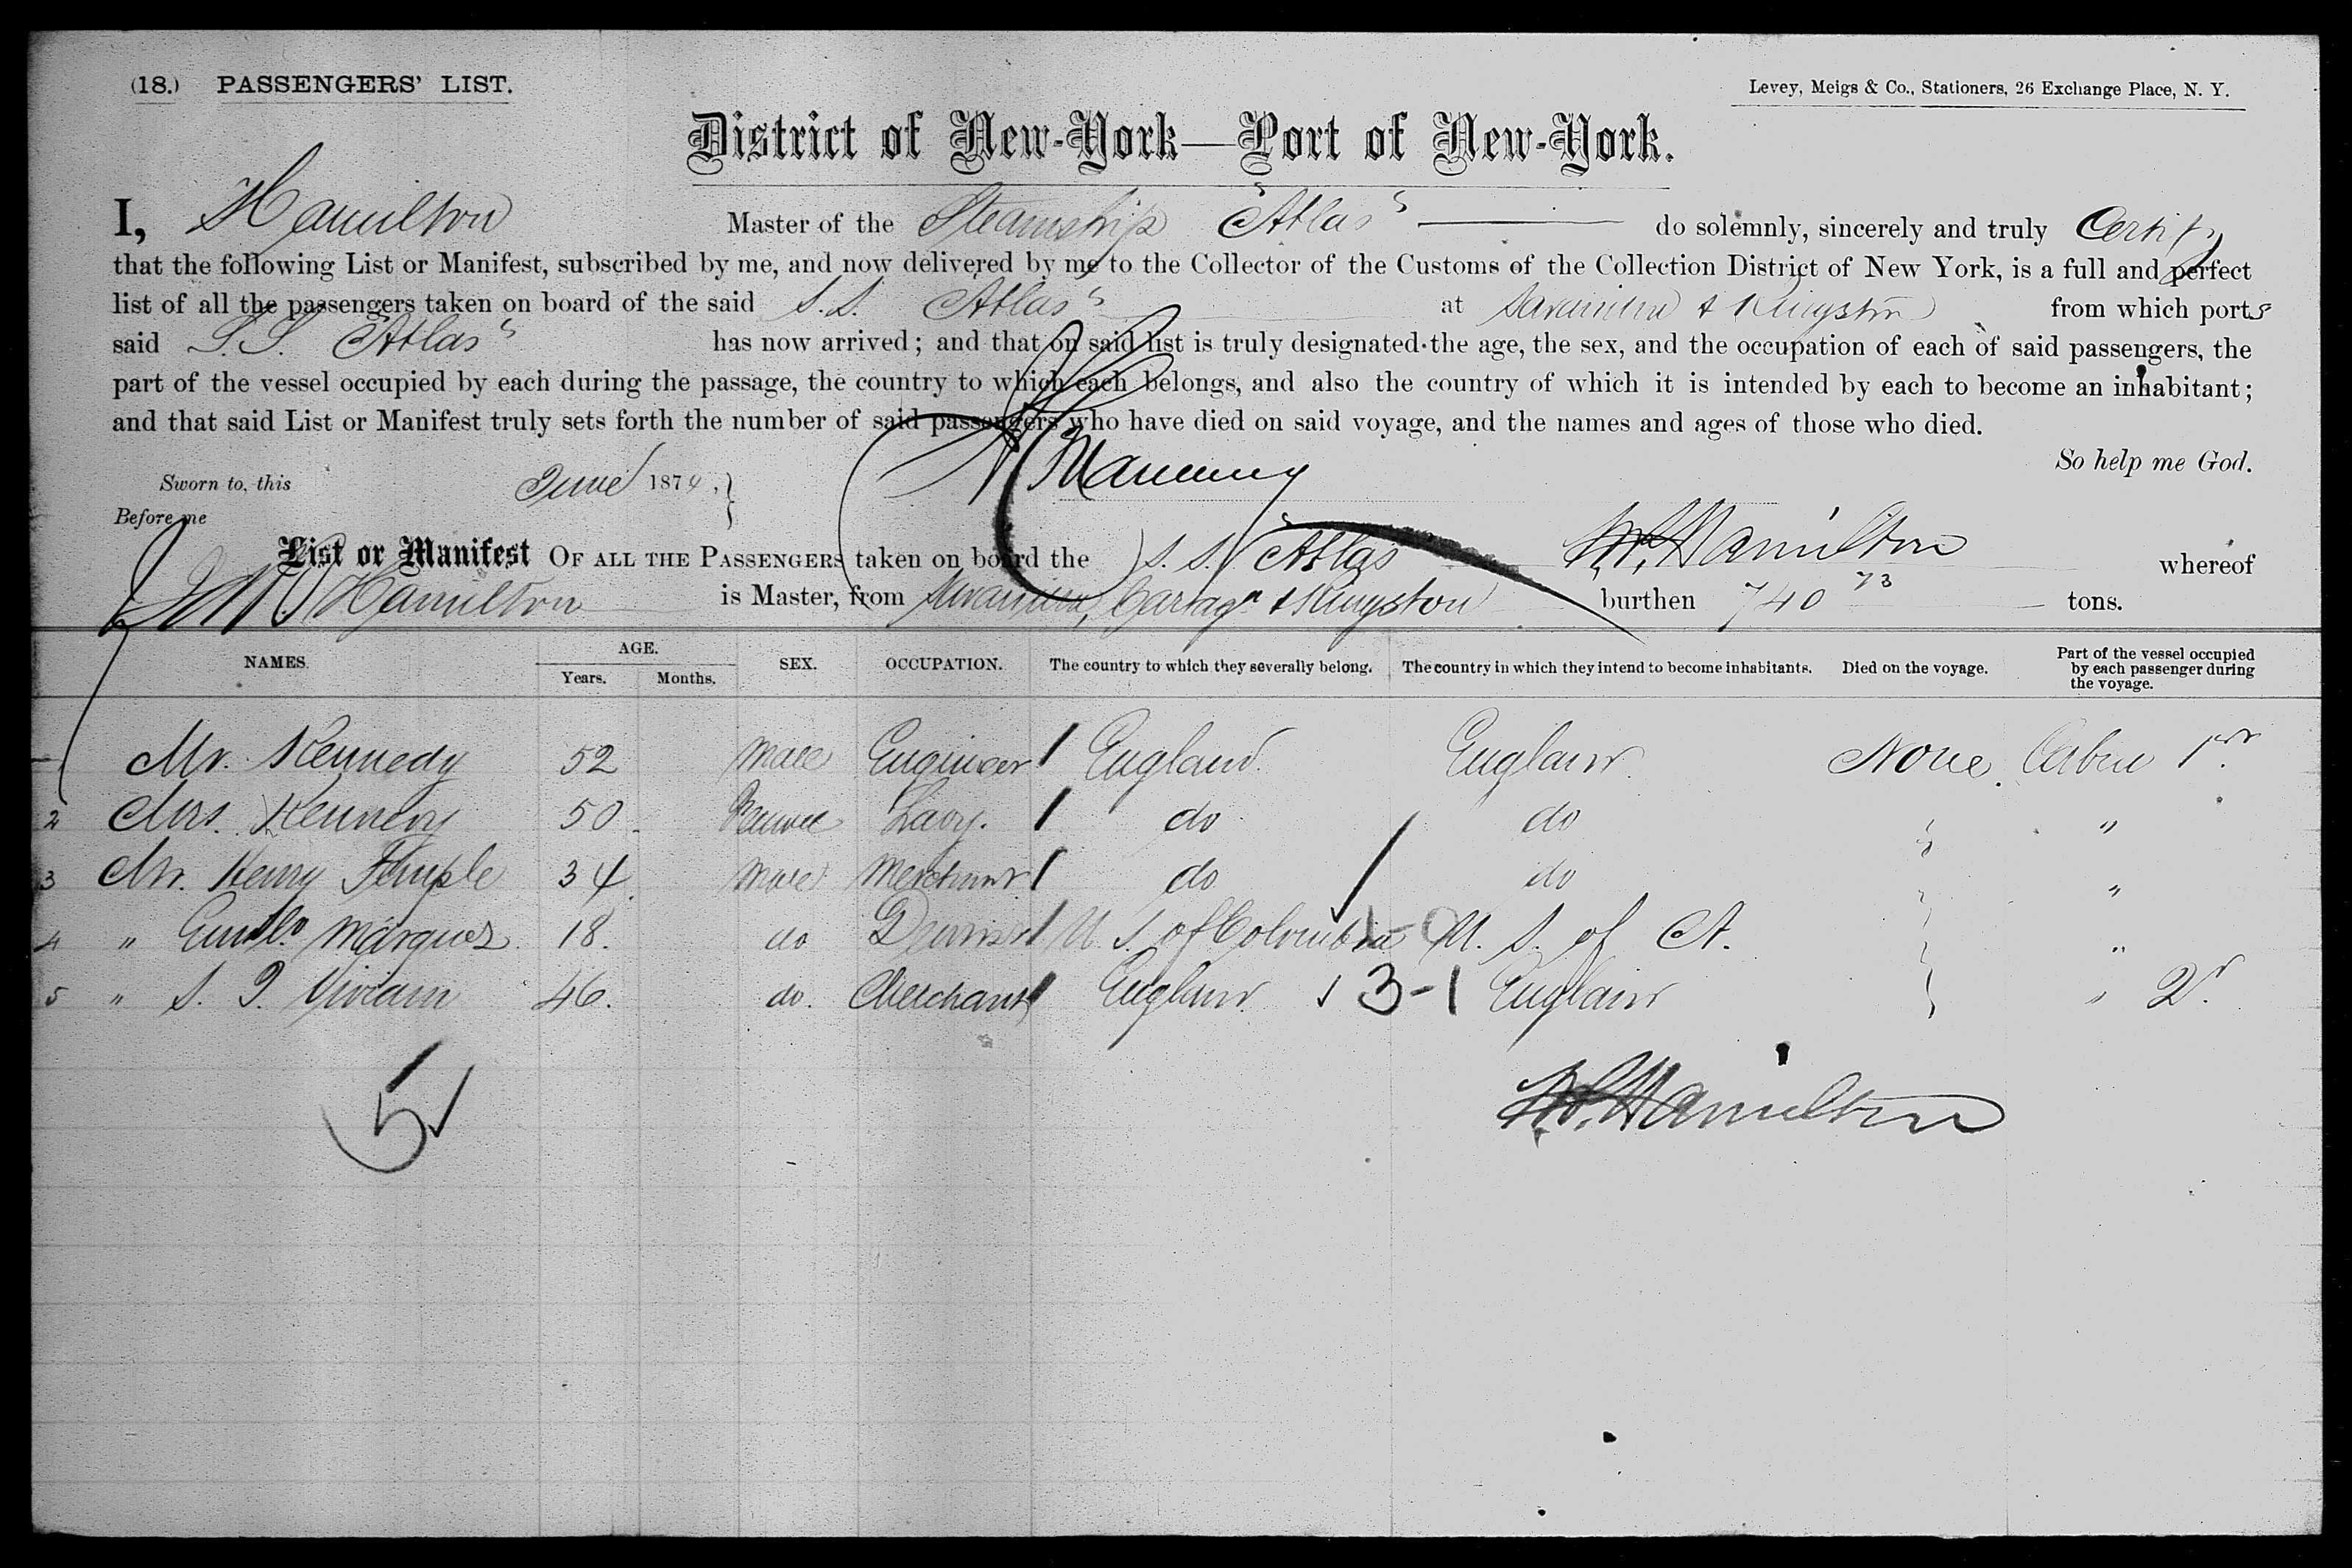 (18.) PASSENGERS' LIST.
Levey, Meigs & Co., Stationers, 26 Exchange Place, N. Y.
District of New-York—Port of New-York.
I, Hamilton Master of the Steamship "Atlas" do solemnly, sincerely and truly Certify
that the following List or Manifest, subscribed by me, and now delivered by me to the Collector of the Customs of the Collection District of New York, is a full and perfect
list of all the passengers taken on board of the said S.S. Atlas" at Savanilla & Kingston from which ports
said S.S. Atlas" has now arrived; and that on said list is truly designated the age, the sex, and the occupation of each of said passengers, the
part of the vessel occupied by each during the passage, the country to which each belongs, and also the country of which it is intended by each to become an inhabitant;
and that said List or Manifest truly sets forth the number of said passengers who have died on said voyage, and the names and ages of those who died.
So help me God.
Sworn to, this June 1874,
Manning
Before me
Hamilton
List or Manifest OF ALL THE PASSENGERS taken on board the S.S. "Atlas whereof
Hamilton is Master, from Savanilla, Cartag^a & Kingston burthen 740 73 tons.
NAMES. AGE. Years. Months. SEX. OCCUPATION. The country to which they severally belong. The country in which they intend to become inhabitants. Died on the voyage. Part of the vessel occupied by each passenger during the voyage.
Mr. Kennedy 52 Male Engineer England England None. Cabin 1st
2 Mrs. Kennedy 50 Female Lady. do do "
3 Mr. Henry Temple 34 Male Merchant do do "
4 " Marquez 18. do U S of Colombia U. S. of A. "
5 " S. J. Vivian 46. do. Merchant England 3-1 England " 2d.
5
Hamilton